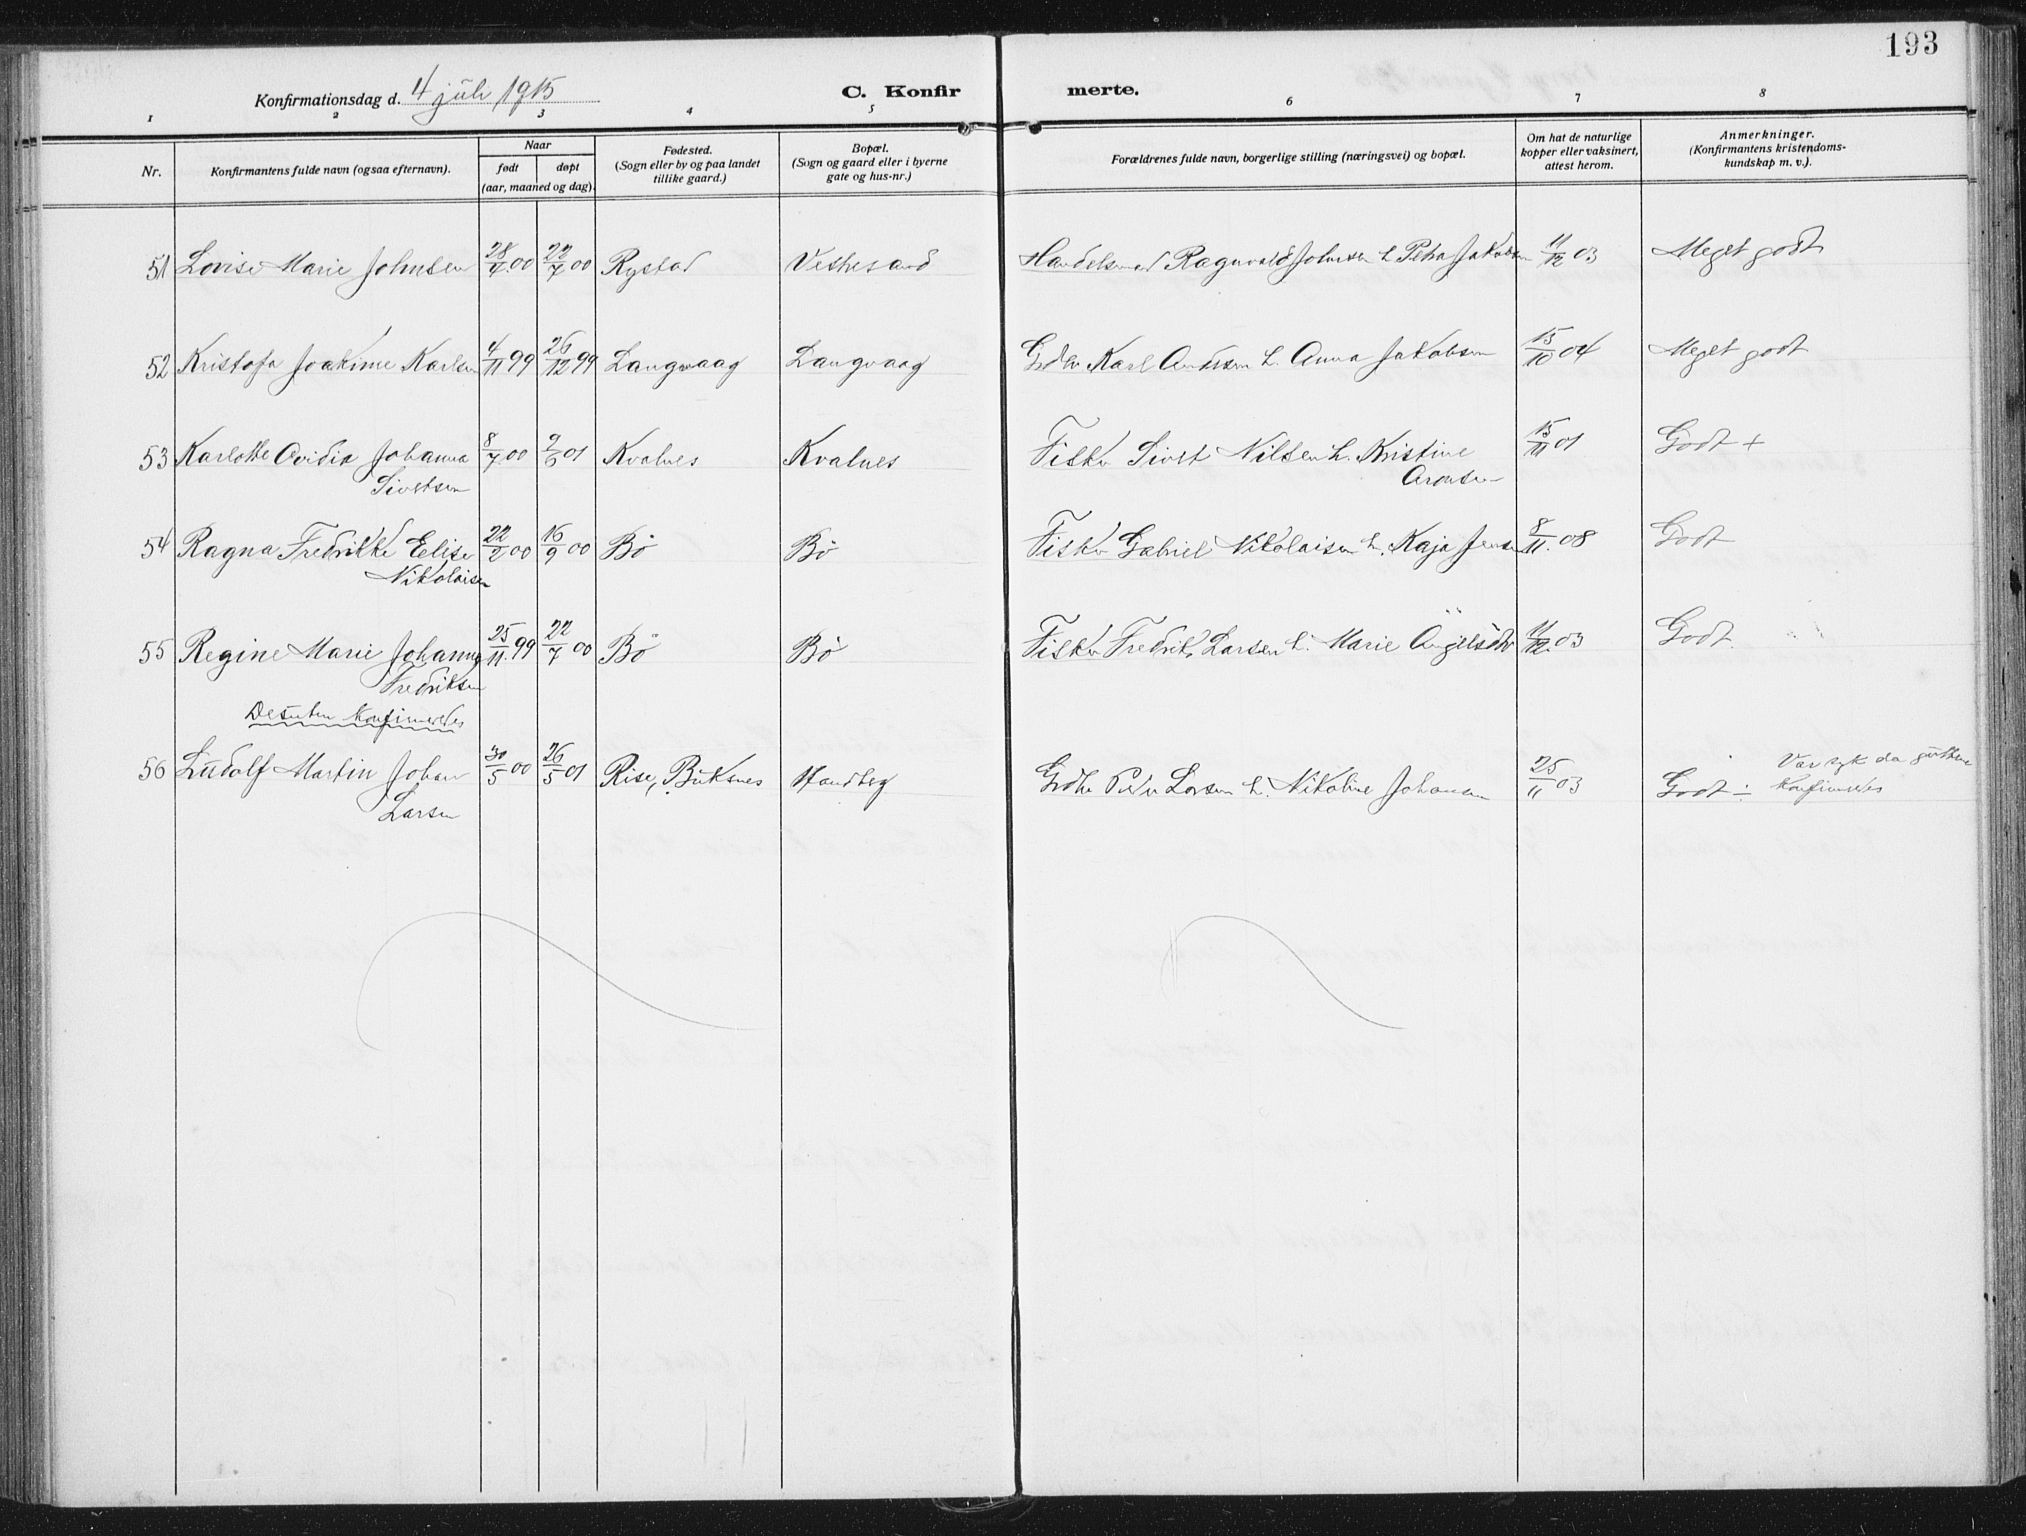 193
Konfirmationsdag d. 4 juli 1915 C. Konfir merte.
1 2 3 4 5 6 7 8
Nr. Konfirmantens fulde navn (ogsaa efternavn). Naar født døpt (aar, maaned og dag). Fødested. (Sogn eller by og paa landet tillike gaard.) Bopæl. (Sogn og gaard eller i byerne gate og hus-nr.) Forældrenes fulde navn, borgerlige stilling (næringsvei) og bopæl. Om hat de naturlige kopper eller vaksinert, attest herom. Anmerkninger. (Konfirmantens kristendoms-kundskap m. v.).
51 Lovise Marie Johnsen 28/4 00 22/7 00 Rystad Vestresand Handelsmand Ragnvald Johnsen h. Petra Jakobsen 11/12 03 Meget godt
52 Kristofa Joakime Karlsen 4/11 99 26/12 99 Langvaag Langvaag Gdbr Karl h. Anna Jakobsen 15/10 04 Meget godt
53 Karlotte Ovidia Johanna 8/7 00 9/6 01 Kvalnes Kvalnes Fisker Sivert Nilsen h. Kristine 15/11 01 Godt +
Sivertsen Aronsen
54 Ragna Fredrikke Elise 22/2 00 16/9 00 Bø Bø Fisker Gabriel Nikolaisen h. Kaja Jensen 8/11. 08 Godt
Nikolaisen
55 Regine Marie Johanna 25/11. 99 22/7 00 Bø Bø Fisker Fredrik Larsen h. Marie 11/12. 03 Godt.
Fredriksen
Desuten konfirmertes
56 Ludolf Martin Johan 30/5 00 26/5 01 Rise, Buksnes Handberg Gdbr Peder Larsen h. Nikoline Johansen 25/11 03 Godt ÷ Var syk da guttene
Larsen konfirmertes